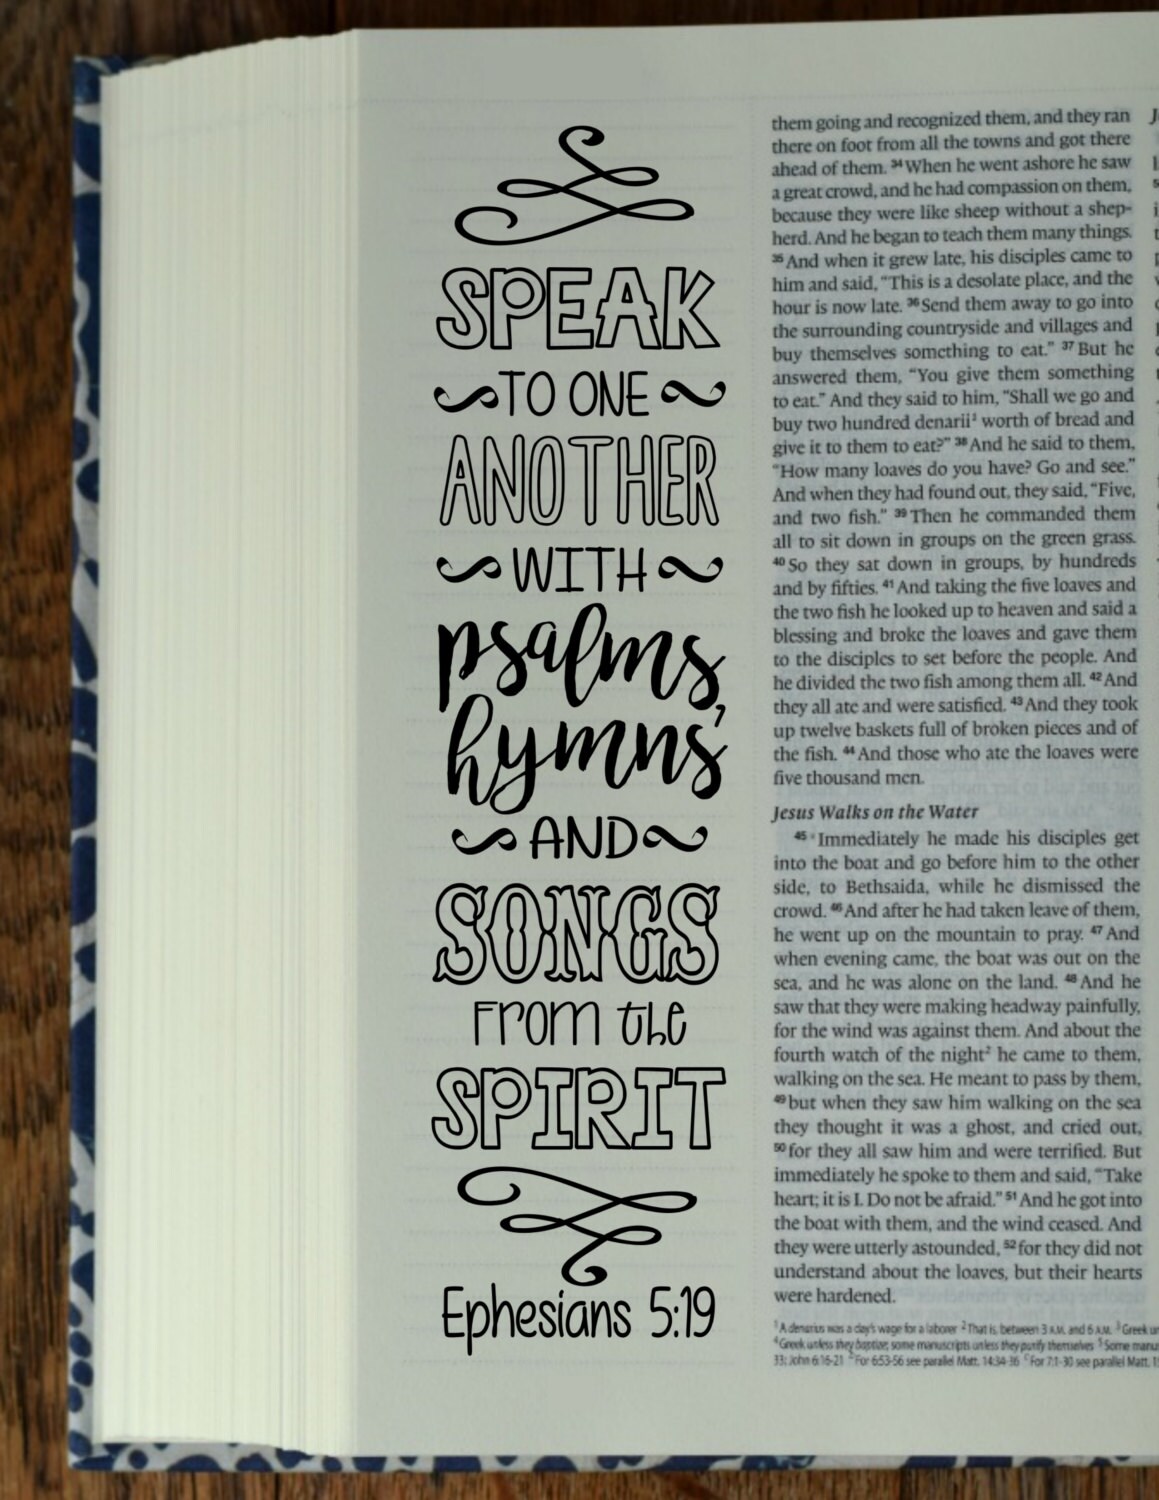 SPEAK
TO ONE
ANOTHER
WITH
psalms,
hymns,
AND
SONGS
FROM the
SPIRIT
Ephesians 5:19
them going and recognized them, and they ran
there on foot from all the towns and got there
ahead of them. 34 When he went ashore he saw
a great crowd, and he had compassion on them,
because they were like sheep without a shep-
herd. And he began to teach them many things.
35 And when it grew late, his disciples came to
him and said, “This is a desolate place, and the
hour is now late. 36 Send them away to go into
the surrounding countryside and villages and
buy themselves something to eat.” 37 But he
answered them, “You give them something
to eat.” And they said to him, “Shall we go and
buy two hundred denarii1 worth of bread and
give it to them to eat?” 38 And he said to them,
“How many loaves do you have? Go and see.”
And when they had found out, they said, “Five,
and two fish.” 39 Then he commanded them
all to sit down in groups on the green grass.
40 So they sat down in groups, by hundreds
and by fifties. 41 And taking the five loaves and
the two fish he looked up to heaven and said a
blessing and broke the loaves and gave them
to the disciples to set before the people. And
he divided the two fish among them all. 42 And
they all ate and were satisfied. 43 And they took
up twelve baskets full of broken pieces and of
the fish. 44 And those who ate the loaves were
five thousand men.
Jesus Walks on the Water
45 Immediately he made his disciples get
into the boat and go before him to the other
side, to Bethsaida, while he dismissed the
crowd. 46 And after he had taken leave of them,
he went up on the mountain to pray. 47 And
when evening came, the boat was out on the
sea, and he was alone on the land. 48 And he
saw that they were making headway painfully,
for the wind was against them. And about the
fourth watch of the night2 he came to them,
walking on the sea. He meant to pass by them,
49 but when they saw him walking on the sea
they thought it was a ghost, and cried out,
50 for they all saw him and were terrified. But
immediately he spoke to them and said, “Take
heart; it is I. Do not be afraid.” 51 And he got into
the boat with them, and the wind ceased. And
they were utterly astounded, 52 for they did not
understand about the loaves, but their hearts
were hardened.
1 A denarius was a day's wage for a laborer 2 That is, between 3 A.M. and 6 A.M. 3 Greek
4 Greek unless they baptize; some manuscripts unless they purify themselves 5 Some
33; John 6:16-21 For 6:53-56 see parallel Matt. 14:34-36 For 7:1-30 see parallel Matt.